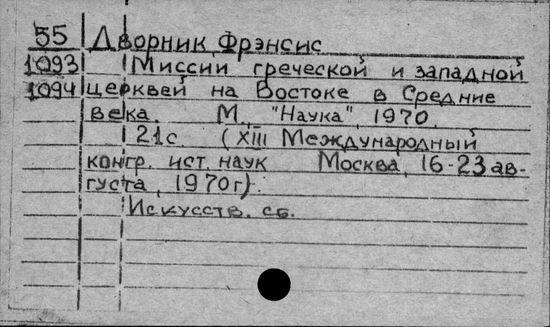 55 Дворник Фрэнсис
1093 Миссии греческой и западной
1094 церквей на Востоке в Средние
века. М., "Наука", 1970.
21с. (XIII Международный
конгр. ист. наук Москва, 16-23 ав-
густа, 1970г).
Искусств. сб.